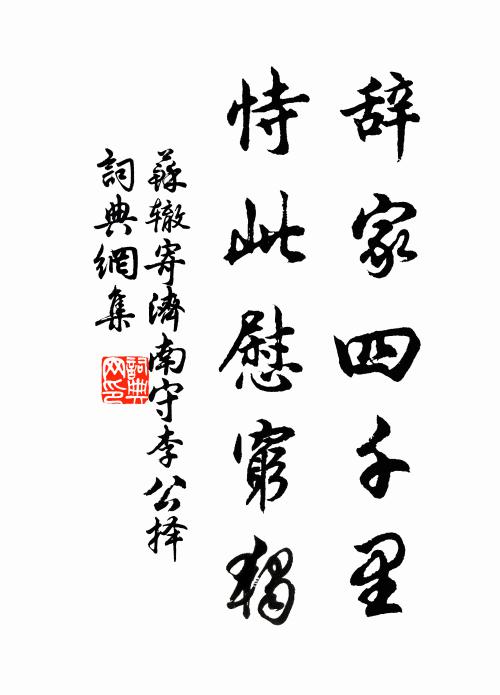 辞家四千里
恃此慰窮獨
蘇辙寄濟南守李公择
詞典網集
詞典網印